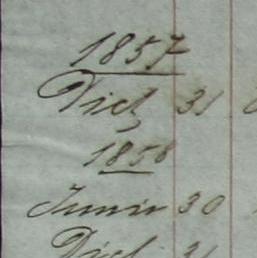 1857
Dicb 31
1858
Junio 30
Dicb 31